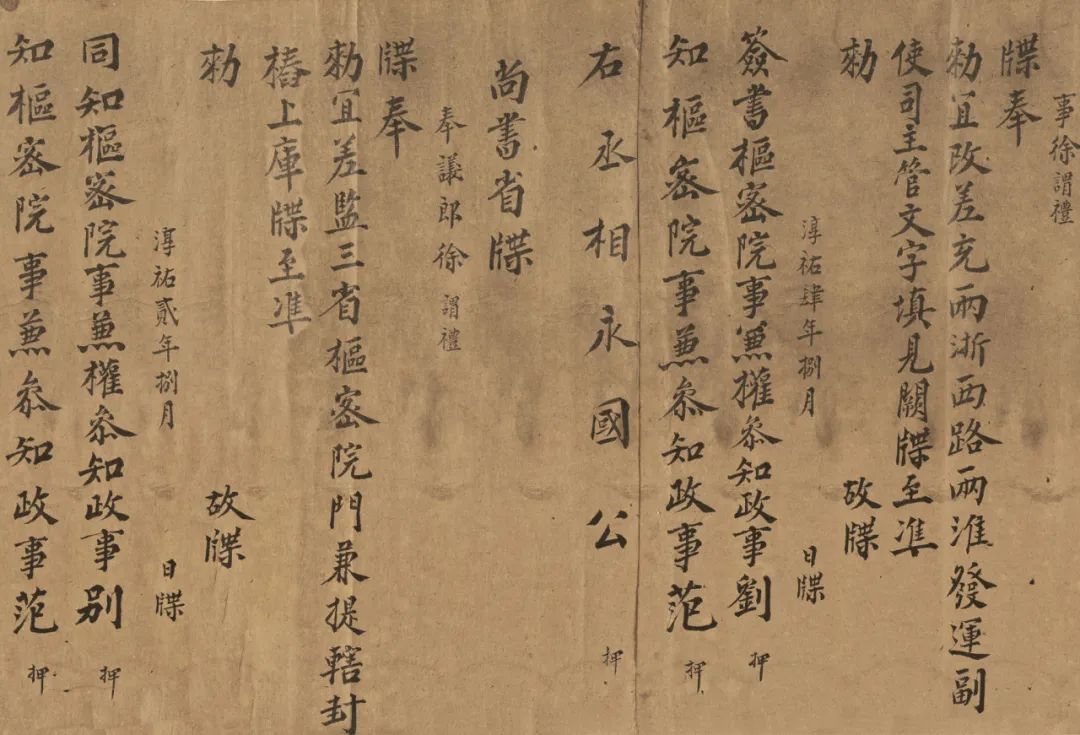 事徐謂禮
牒奉
勑宜改差充兩浙西路兩淮發運副
使司主管文字填見闕牒至準
勑 故牒
淳祐肆年捌月 日牒
簽書樞密院事兼權叅知政事劉 押
知樞密院事兼叅知政事范 押
右丞相永國公 押
尚書省牒
奉議郎徐謂禮
牒奉
勑宜差監三省樞密院門兼提轄封
樁上庫牒至準
勑 故牒
淳祐貳年捌月 日牒
同知樞密院事兼權叅知政事别 押
知樞密院事兼叅知政事范 押